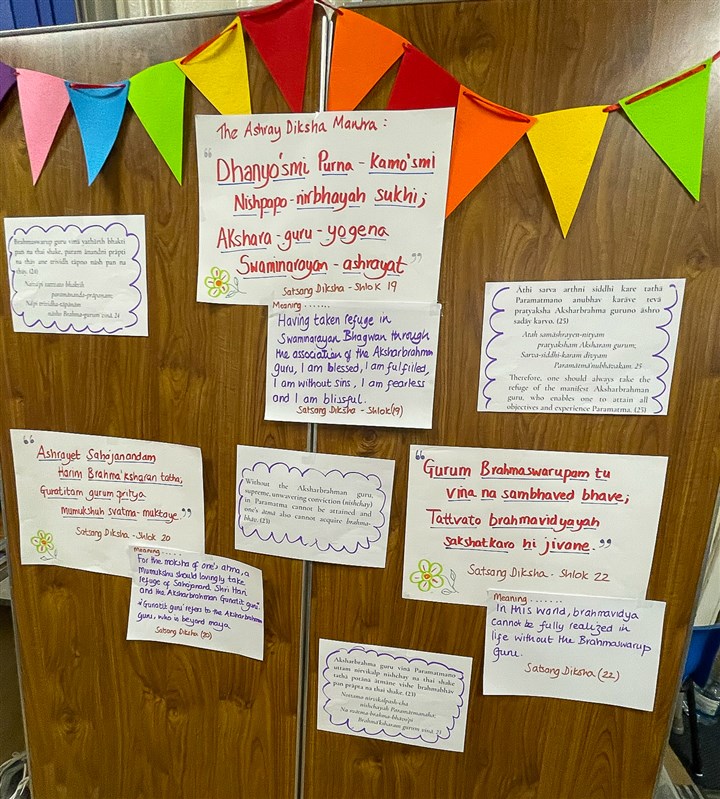 The Ashray Diksha Mantra :
"Dhanyo'smi Purna - Kamo'smi
Nishpapo - nirbhayah sukhi;
Akshara - guru - yogena
Swaminarayan - ashrayat"
Satsang Diksha - Shlok 19
Meaning .......
Having taken refuge in
Swaminarayan Bhagwan through
the association of the Aksharbrahma
guru, I am blessed, I am fulfilled,
I am without sins, I am fearless
and I am blissful.
Satsang Diksha - Shlok (19)
Brahmaswarup guru vinā yathārth bhakti
pan na thai shake, param ānandni prāpti
na thāy ane trividh tāpno nāsh pan na
thāy. (24)
Naivā'pi tattvato bhaktih
paramānanda-prāpanam;
Nā'pi trividha-tāpānām
nāsho Brahma-gurum vinā. 24
Āthi sarva arthni siddhi kare tathā
Paramātmāno anubhav karāve tevā
pratyaksha Aksharbrahma guruno āshro
sadāy karvo. (25)
Atah samāshrayen-nityam
pratyaksham Aksharam gurum;
Sarva-siddhi-karam divyam
Paramātmā'nubhāvakam. 25
Therefore, one should always take the
refuge of the manifest Aksharbrahman
guru, who enables one to attain all
objectives and experience Paramatma. (25)
"Ashrayet Sahajanandam
Harim Brahma'ksharam tatha,
Gunatitam gurum pritya
Mumukshuh svatma-muktaye."
Satsang Diksha - Shlok 20
Meaning ......
For the moksha of one's atma, a
Mumukshu should lovingly take
refuge of Sahajanand Shri Hari
and the Aksharbrahman Gunatit guru.
'Gunatit guru' refers to the Aksharbrahman
guru, who is beyond maya
Satsang Diksha (20)
Without the Aksharbrahman guru,
supreme, unwavering conviction (nishchay)
in Paramatma cannot be attained and
one's ātmā also cannot acquire brahma-
bhāv. (23)
"Gurum Brahmaswarupam tu
vina na sambhaved bhave;
Tattvato brahmavidyayah
sakshatkaro hi jivane."
Satsang Diksha - Shlok 22
Meaning .......
In this world, brahmavidya
cannot be fully realized in
life without the Brahmaswarup
Guru.
Satsang Diksha (22)
Aksharbrahma guru vinā Paramātmāno
uttam nirvikalp nishchay na thai shake
tathā potānā ātmāne vishe brahmabhāv
pan prāpta na thai shake. (23)
Nottamo nirvikalpash-cha
nishchayah Paramātmanah;
Na svātma-brahma-bhāvo'pi
Brahmā'ksharam gurum vinā. 23